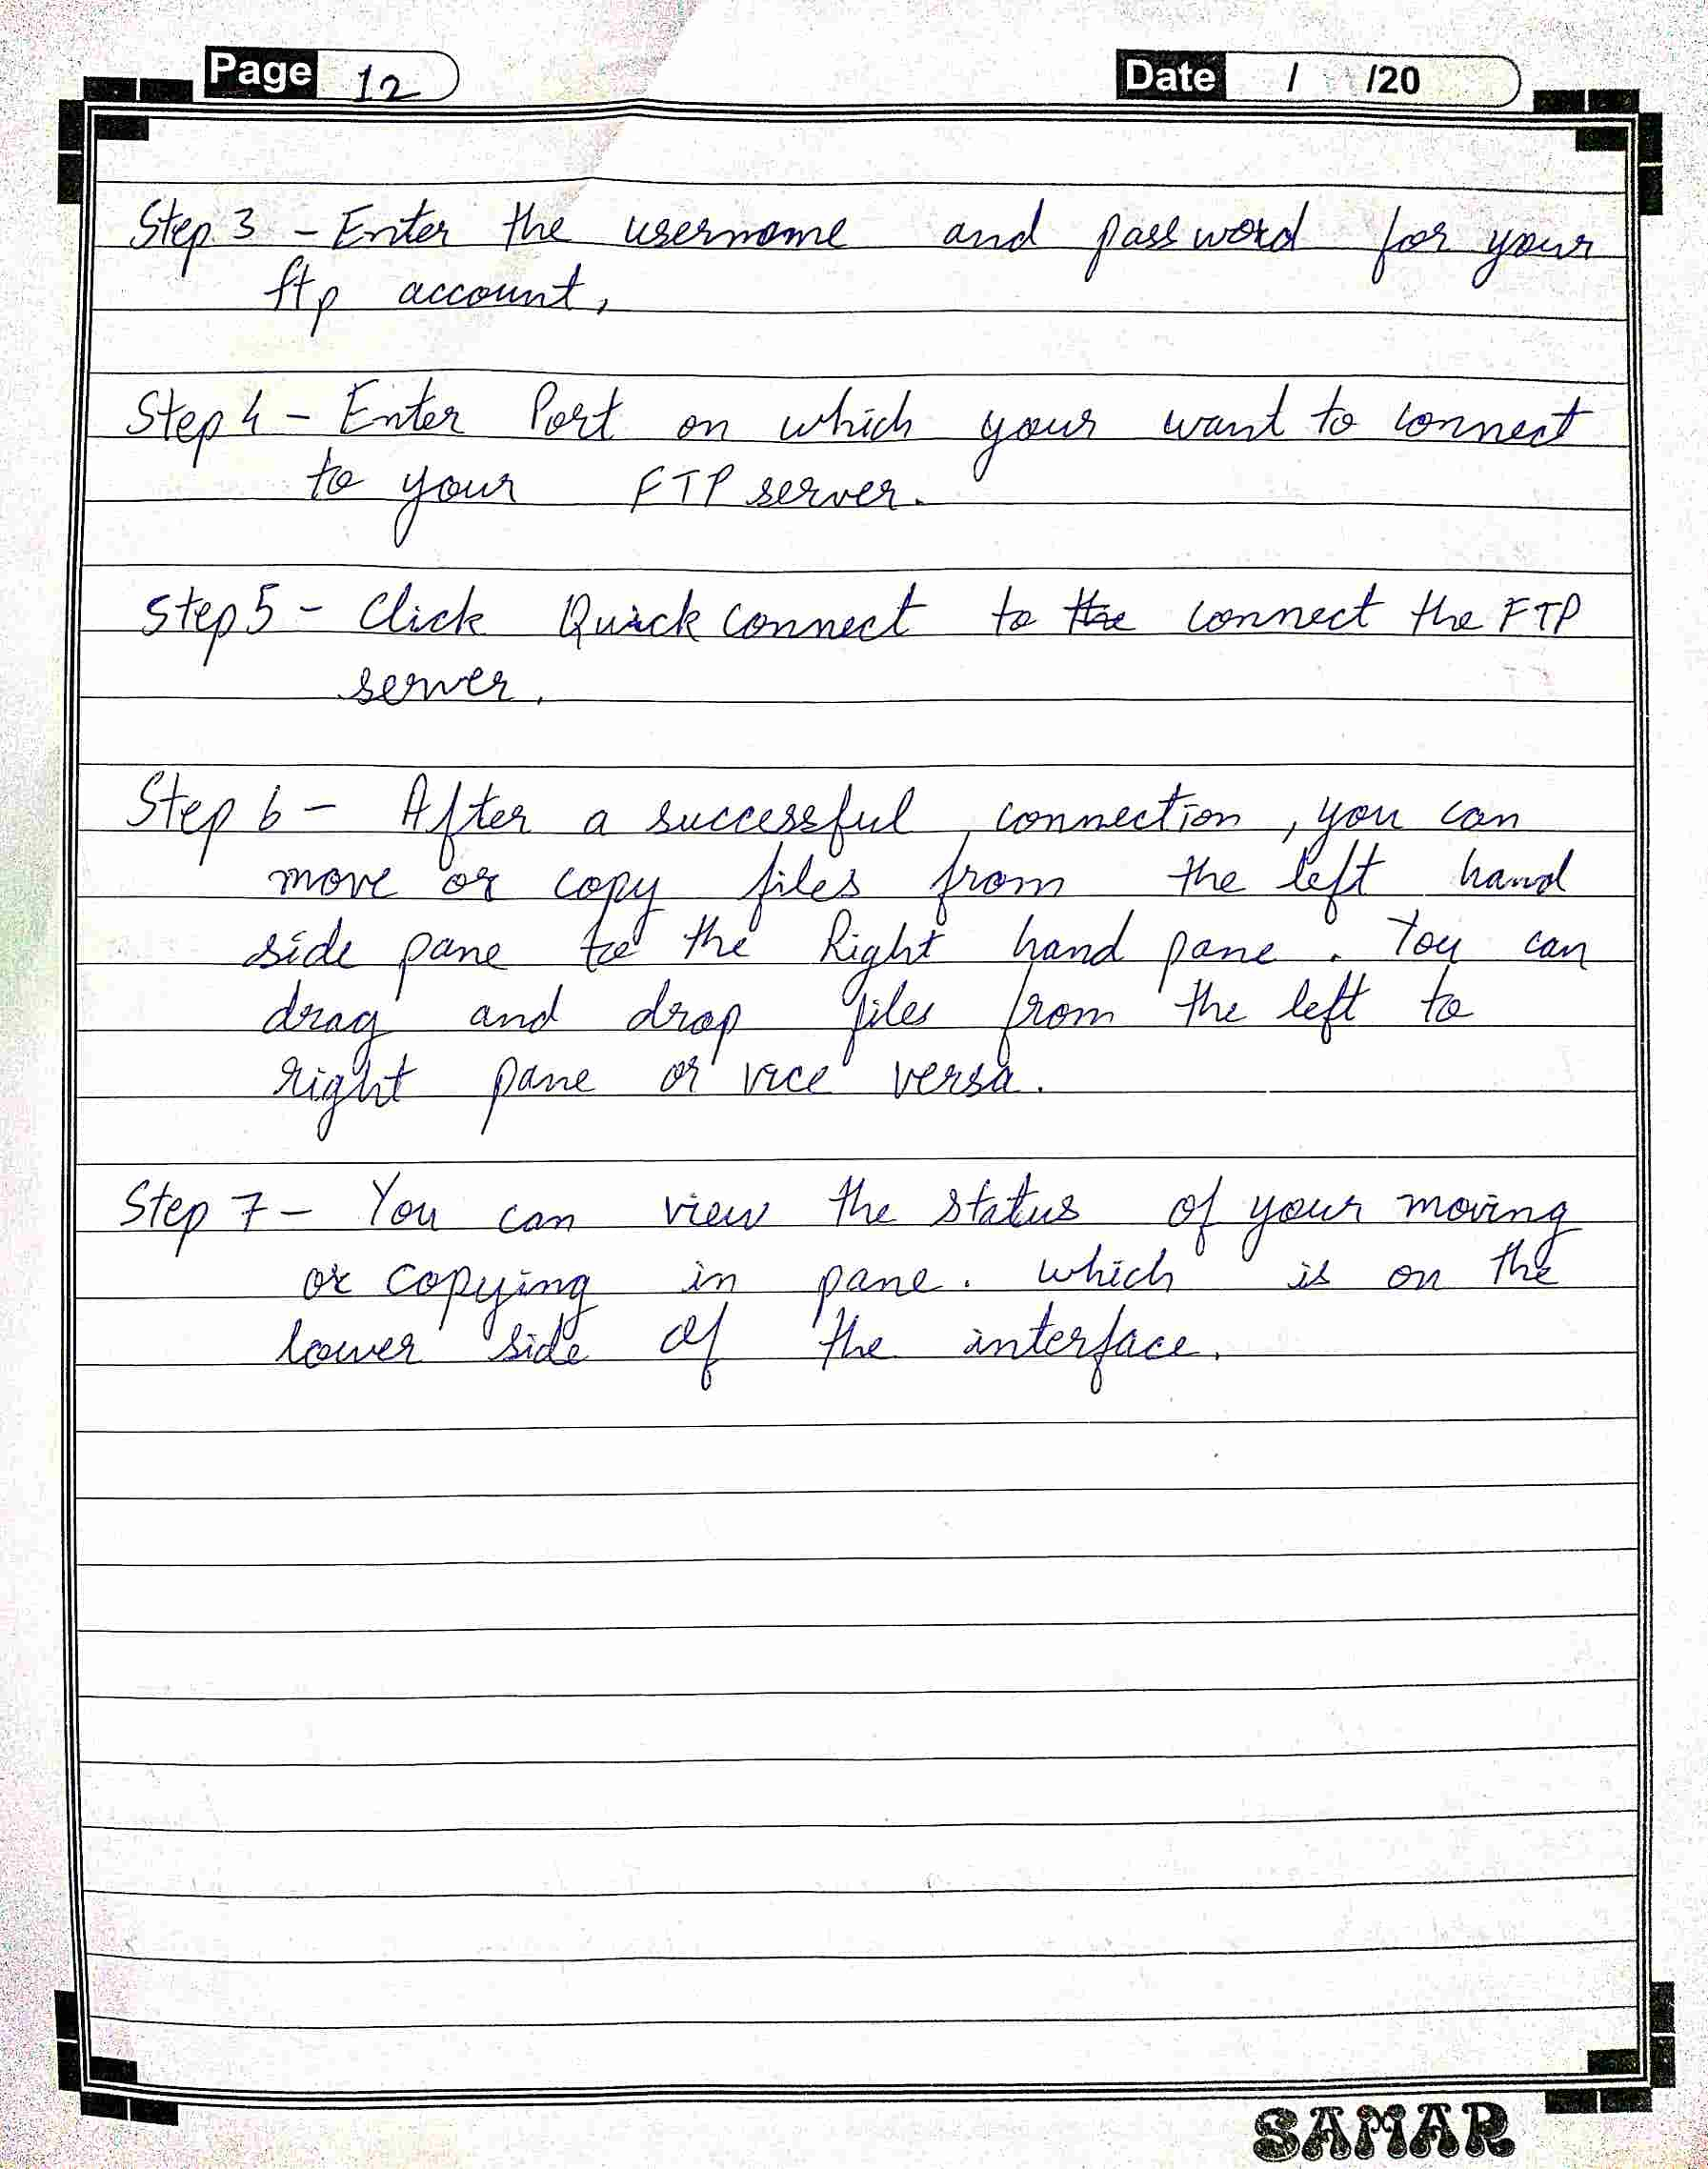 Page 12 Date / /20
Step 3 - Enter the username and password for your
ftp account,
Step 4 - Enter Port on which your want to connect
to your FTP server.
Step 5 - Click Quick connect to the connect the FTP
server.
Step 6 - After a successful, connection, you can
move or copy files from the left hand
side pane to the Right hand pane. You can
drag and drop files from the left to
right pane or vice versa.
Step 7 - You can view the status of your moving
or copying in pane. which is on the
lower side of the interface.
SAMAR